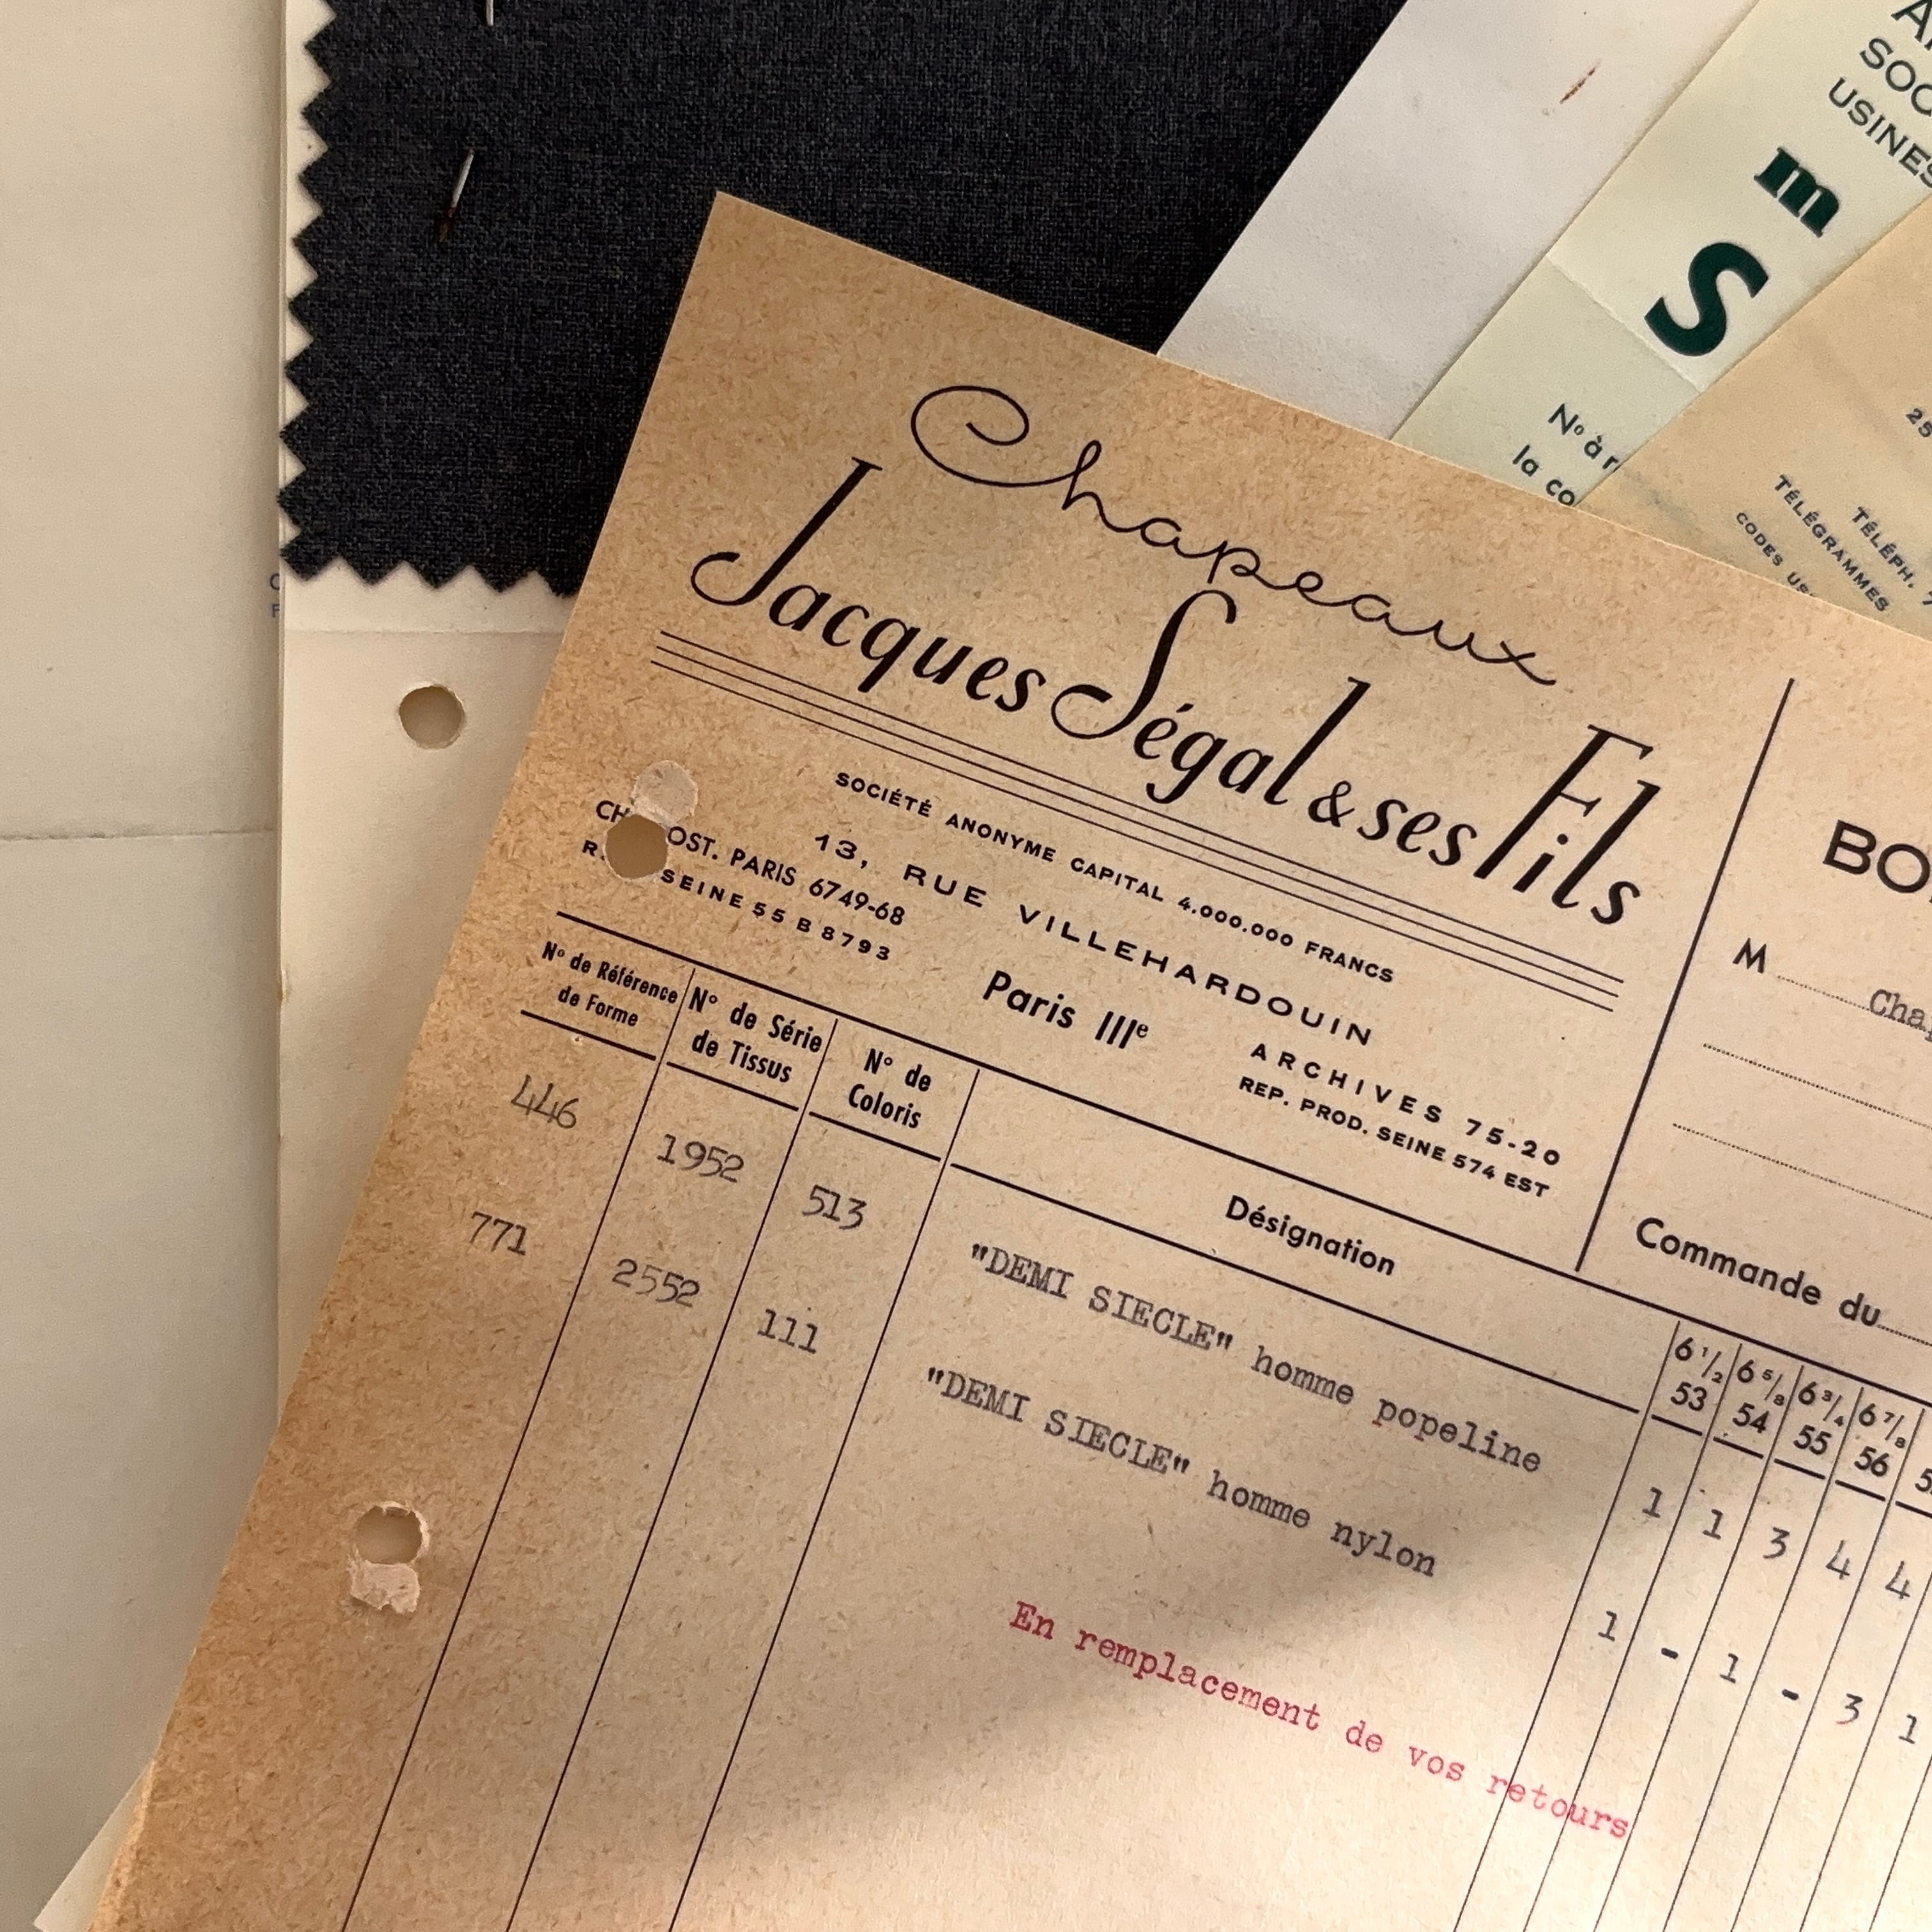 SOC
USINES
m
S
N° à r
la co
TÉLÉPH.
TÉLÉGRAMMES
CODES US
Chapeaux
Jacques Ségal & ses Fils
SOCIÉTÉ ANONYME CAPITAL 4.000.000 FRANCS
13, RUE VILLEHARDOUIN
Paris IIIe
CH OST. PARIS 6749-68
R. SEINE 55 B 8793
ARCHIVES 75-20
REP. PROD. SEINE 574 EST
BO
M Cha
Commande du
N° de Référence de Forme
N° de Série de Tissus
N° de Coloris
Désignation
6 1/2 6 5/8 6 3/4 6 7/8
53 54 55 56 5
446 1952 513 "DEMI SIECLE" homme popeline 1 1 3 4 4
771 2552 111 "DEMI SIECLE" homme nylon 1 - 1 - 3 1
En remplacement de vos retours